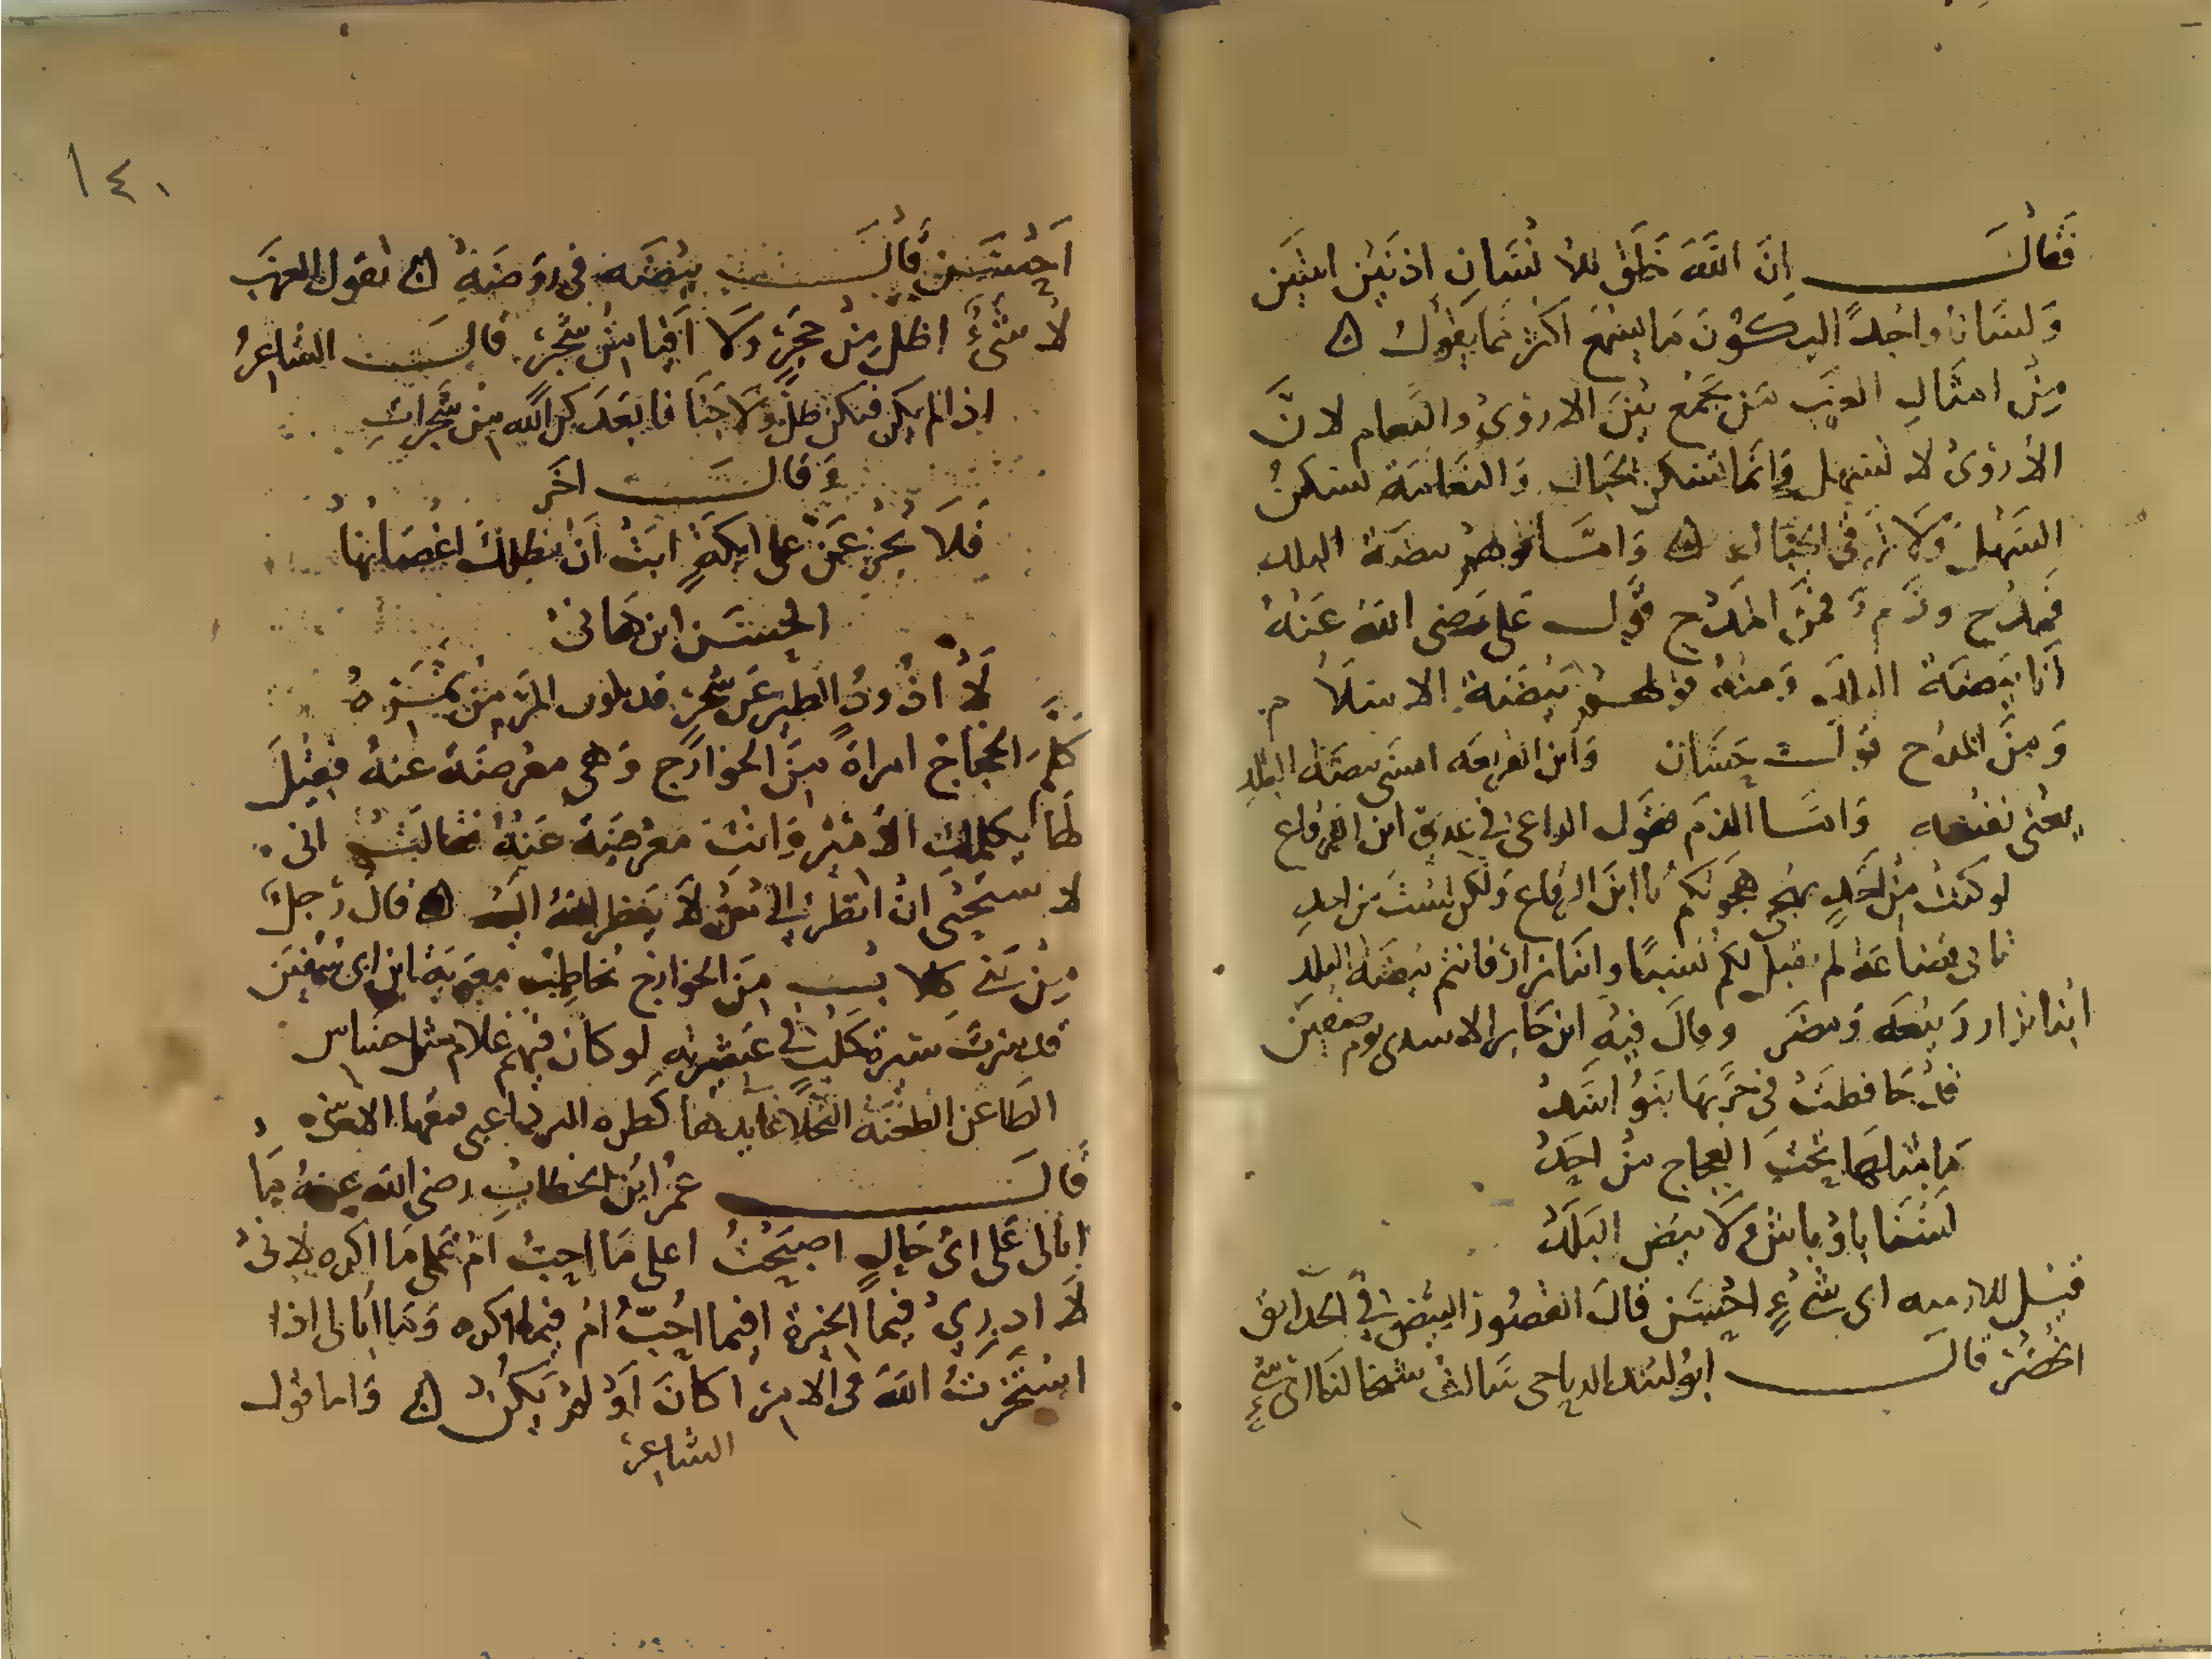 فقال إن الله خلق للانسان اذنين اثنين
ولسانا واحدا ليكون ما يسمع اكثر مما يقول
من امثال العرب من يجمع بين الاروى والنعام لان
الأروى لا تسهل وانما تسكن الجبال والنعامة تسكن
السهل ولا ترقى الجبال واما قولهم بيضة البلد
فمدح وذم فمن المدح قول على رضى الله عنه
أنا بيضة البلد ومنه قولهم بيضة الاسلام
ومن المدح قول حسان وابن الفريعه امسى بيضة البلد
يعنى نفسه واما الذم فقول الراعى فى عدى ابن الرقاع
لو كنت من احد يهجى هجوتكم يا ابن الرقاع ولكن لست من احد
تابى قضاعة لم تقبل لكم نسبا وابنا نزار فانتم بيضة البلد
ابنا نزار ربيعه ومضر وقال فيه ابن جابر الاسدى يوم صفين
قد حافظت فى حربها بنو اسد
ما مثلها تحت العجاج من احد
لسنا باوباش ولا بيض البلد
قيل للا اى شىء احسن قال القصور البيض فى الحدائق
الخضر قال ابو الرياحى سالت شيخا لنا اى شىء
١٤٠
احسن قال بيضه فى روضة تقول العرب
لا شىء اظل من حجر ولا افيا من شجر قال الشاعر
اذا لم يكن فيكن ظل ولا جنا فابعدكن الله من شجرات
وقال اخر
فلا تجزعن على ايكة ابت أن تظلك اغصانها
الحسن ابن هانى
لا اذود الطير عن شجر قد بلوت المر من ثمره
كلم الحجاج امراة من الخوارج وهى معرضة عنه فقيل
لها يكلمك الأمير وانت معرضة عنه فقالت انى
لاستحيى ان انظر الى من لا ينظر الله اليه قال رجل
من بنى كلاب من الخوارج يخاطب معوية ابن ابى سفين
قد سرت سير كليب فى عشيرته لو كان فيهم غلام مثل جساس
الطاعن الطعنة النجلا عاندها كطره البرد اعيى فتقها الاسى
قال عمر ابن الخطاب رضى الله عنه ما
ابالى على اى حال اصبحت اعلى ما احب ام على ما اكره لانى
لا ادرى فيما الخيرة افيما احب ام فيما اكره وما ابالى اذا
استخرت الله فى الامر اكان أو لم يكن واما قول
الشاعر